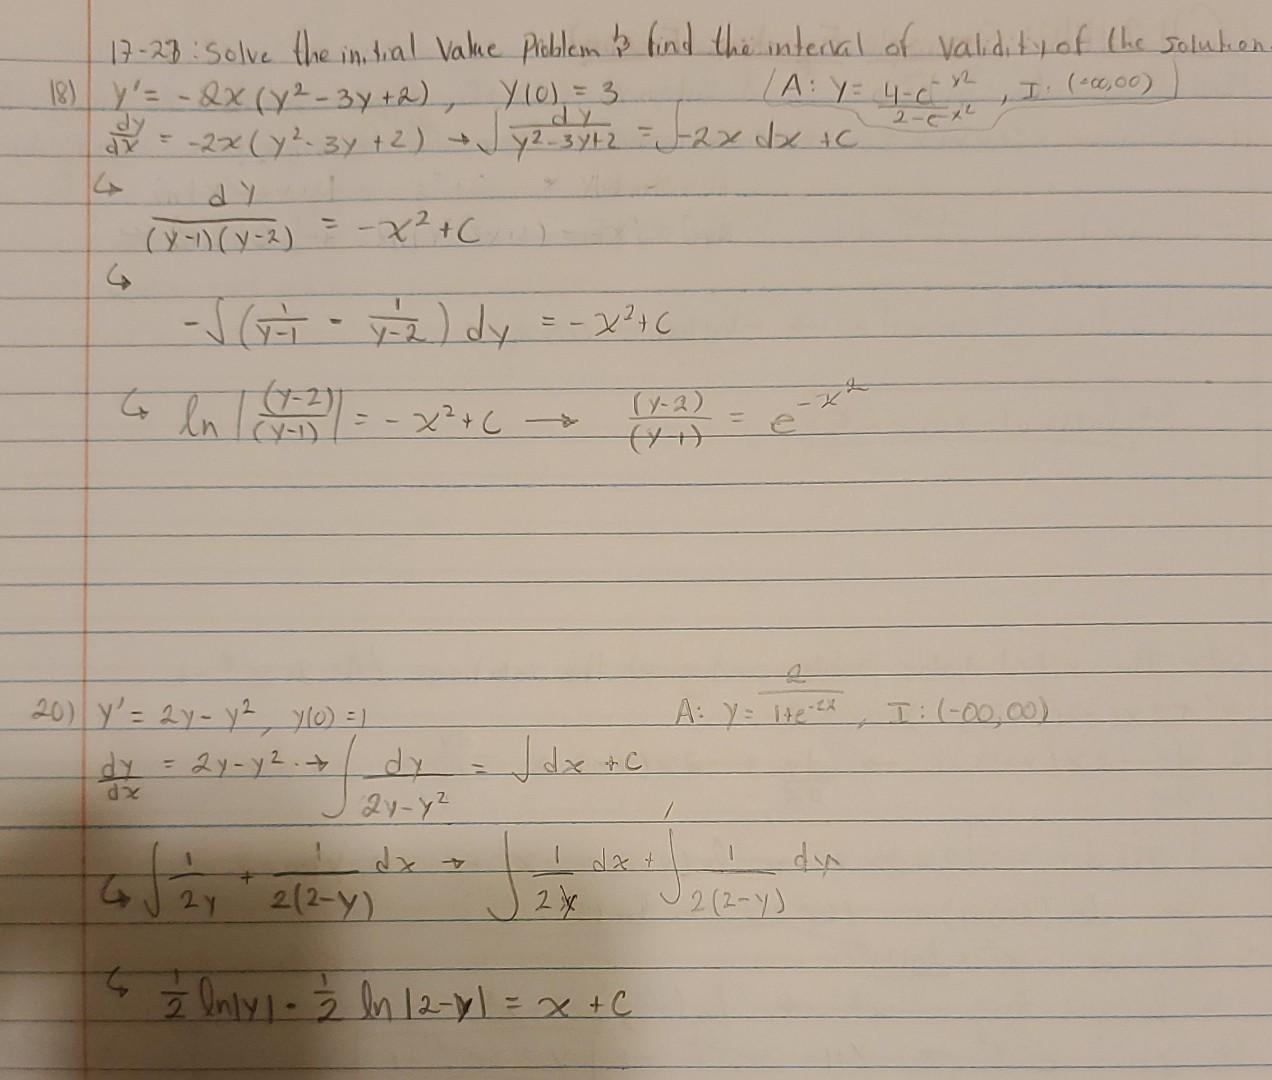 17-23: Solve the initial value Problem & find the interval of validity of the solution.
18) y' = -2x(y² - 3y + 2), y(0) = 3 (A: y = (4 - e^(-x²))/(2 - e^(-x²)), I: (-∞,∞))
dy/dx = -2x(y² - 3y + 2) → ∫ dy/(y² - 3y + 2) = ∫ -2x dx + C
↳ dy/((y-1)(y-2)) = -x² + C
↳ -∫ (1/(y-1) - 1/(y-2)) dy = -x² + C
↳ ln |(y-2)/(y-1)| = -x² + C → (y-2)/(y-1) = e^(-x²)
20) y' = 2y - y², y(0) = 1 A: y = 2/(1+e^(-2x)), I: (-∞,∞)
dy/dx = 2y - y² · → ∫ dy/(2y - y²) = ∫ dx + C
↳ ∫ 1/(2y) + 1/(2(2-y)) dx → ∫ 1/(2y) dx + ∫ 1/(2(2-y)) dx
↳ 1/2 ln|y| - 1/2 ln |2-y| = x + C